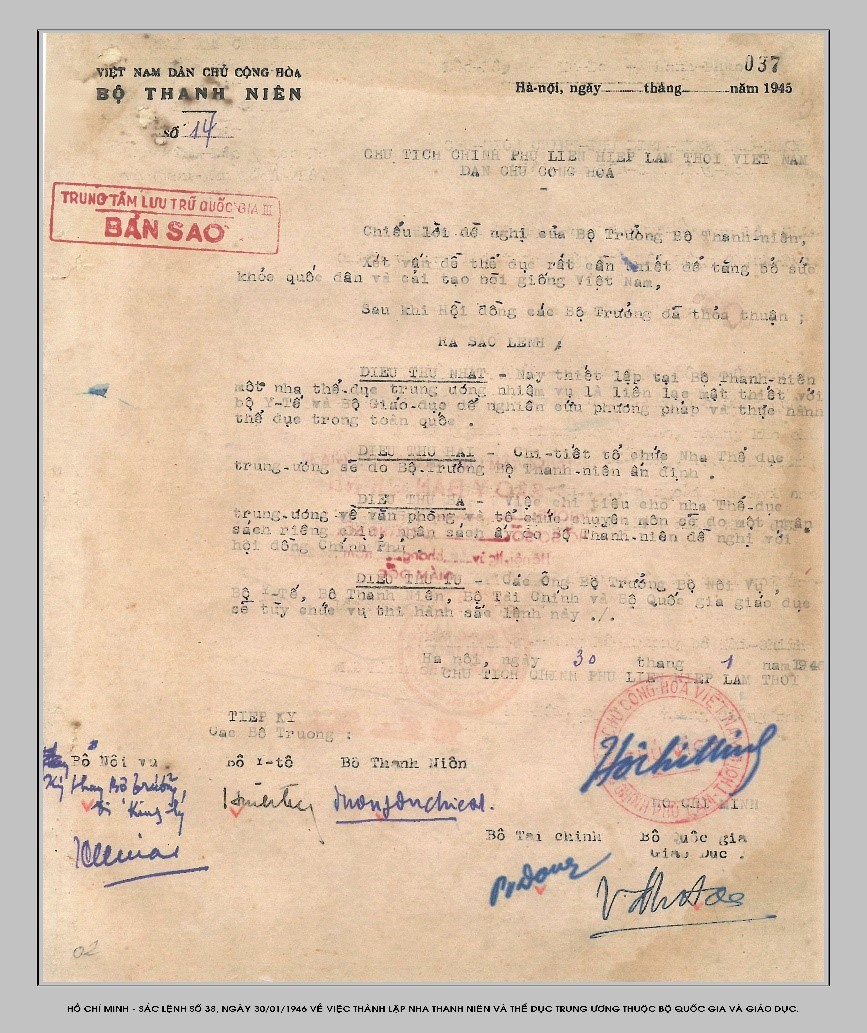 037
VIỆT NAM DÂN CHỦ CỘNG HÒA
BỘ THANH NIÊN
SỐ 14
Hà-nội, ngày tháng năm 1945
TRUNG TÂM LƯU TRỮ QUỐC GIA III
BẢN SAO
CHU TICH CHINH PHU LIEN HIEP LAM THOI VIET NAM
DAN CHU CONG HOA
Chiếu lời đề nghị của Bộ Trưởng Bộ Thanh-niên,
Xét vấn đề thể dục rất cần thiết để tăng bổ sức
khỏe quốc dân và cải tạo nòi giống Việt Nam,
Sau khi Hội đồng các Bộ Trưởng đã thỏa thuận ;
RA SAC LENH
DIEU THU NHAT - Nay thiết lập tại Bộ Thanh-niên
một nha thể-dục trung ương nhiệm vụ là liên lạc mật thiết với
bộ Y-Tế và Bộ Giáo-dục để nghiên cứu phương pháp và thực hành
thể dục trong toàn quốc .
DIEU THU HAI - Chi-tiết tổ chức Nha Thể dục
trung-ương sẽ do Bộ Trưởng Bộ Thanh-niên ấn định .
DIEU THU BA - Việc chi tiêu cho nha Thể-dục
trung-ương về văn phòng và tổ chức chuyên môn sẽ do một ngân
sách riêng ngân sách ấy do Bộ Thanh-niên đề nghị với
hội đồng Chính Phủ .
DIEU THU TU - Các Ông Bộ Trưởng Bộ Nội Vụ,
Bộ Y-Tế, Bộ Thanh Niên, Bộ Tài Chính và Bộ Quốc gia giáo dục
sẽ tùy chức vụ thi hành sắc lệnh này ./.
Ha nôi, ngày 30 thang 1 nam 1946
CHU TICH CHINH PHU LIEN HIEP LAM THOI
TIEP KY
Cac Bô Truong :
Bô Nôi vu
Bô Y-tê
Bô Thanh Niên
Ký thay Bộ trưởng
Hồ Chí Minh
HO CHI MINH
Bô Tai chinh
Bô Quôc gia
Giao Duc .
02
HỒ CHÍ MINH - SẮC LỆNH SỐ 38, NGÀY 30/01/1946 VỀ VIỆC THÀNH LẬP NHA THANH NIÊN VÀ THỂ DỤC TRUNG ƯƠNG THUỘC BỘ QUỐC GIA VÀ GIÁO DỤC.